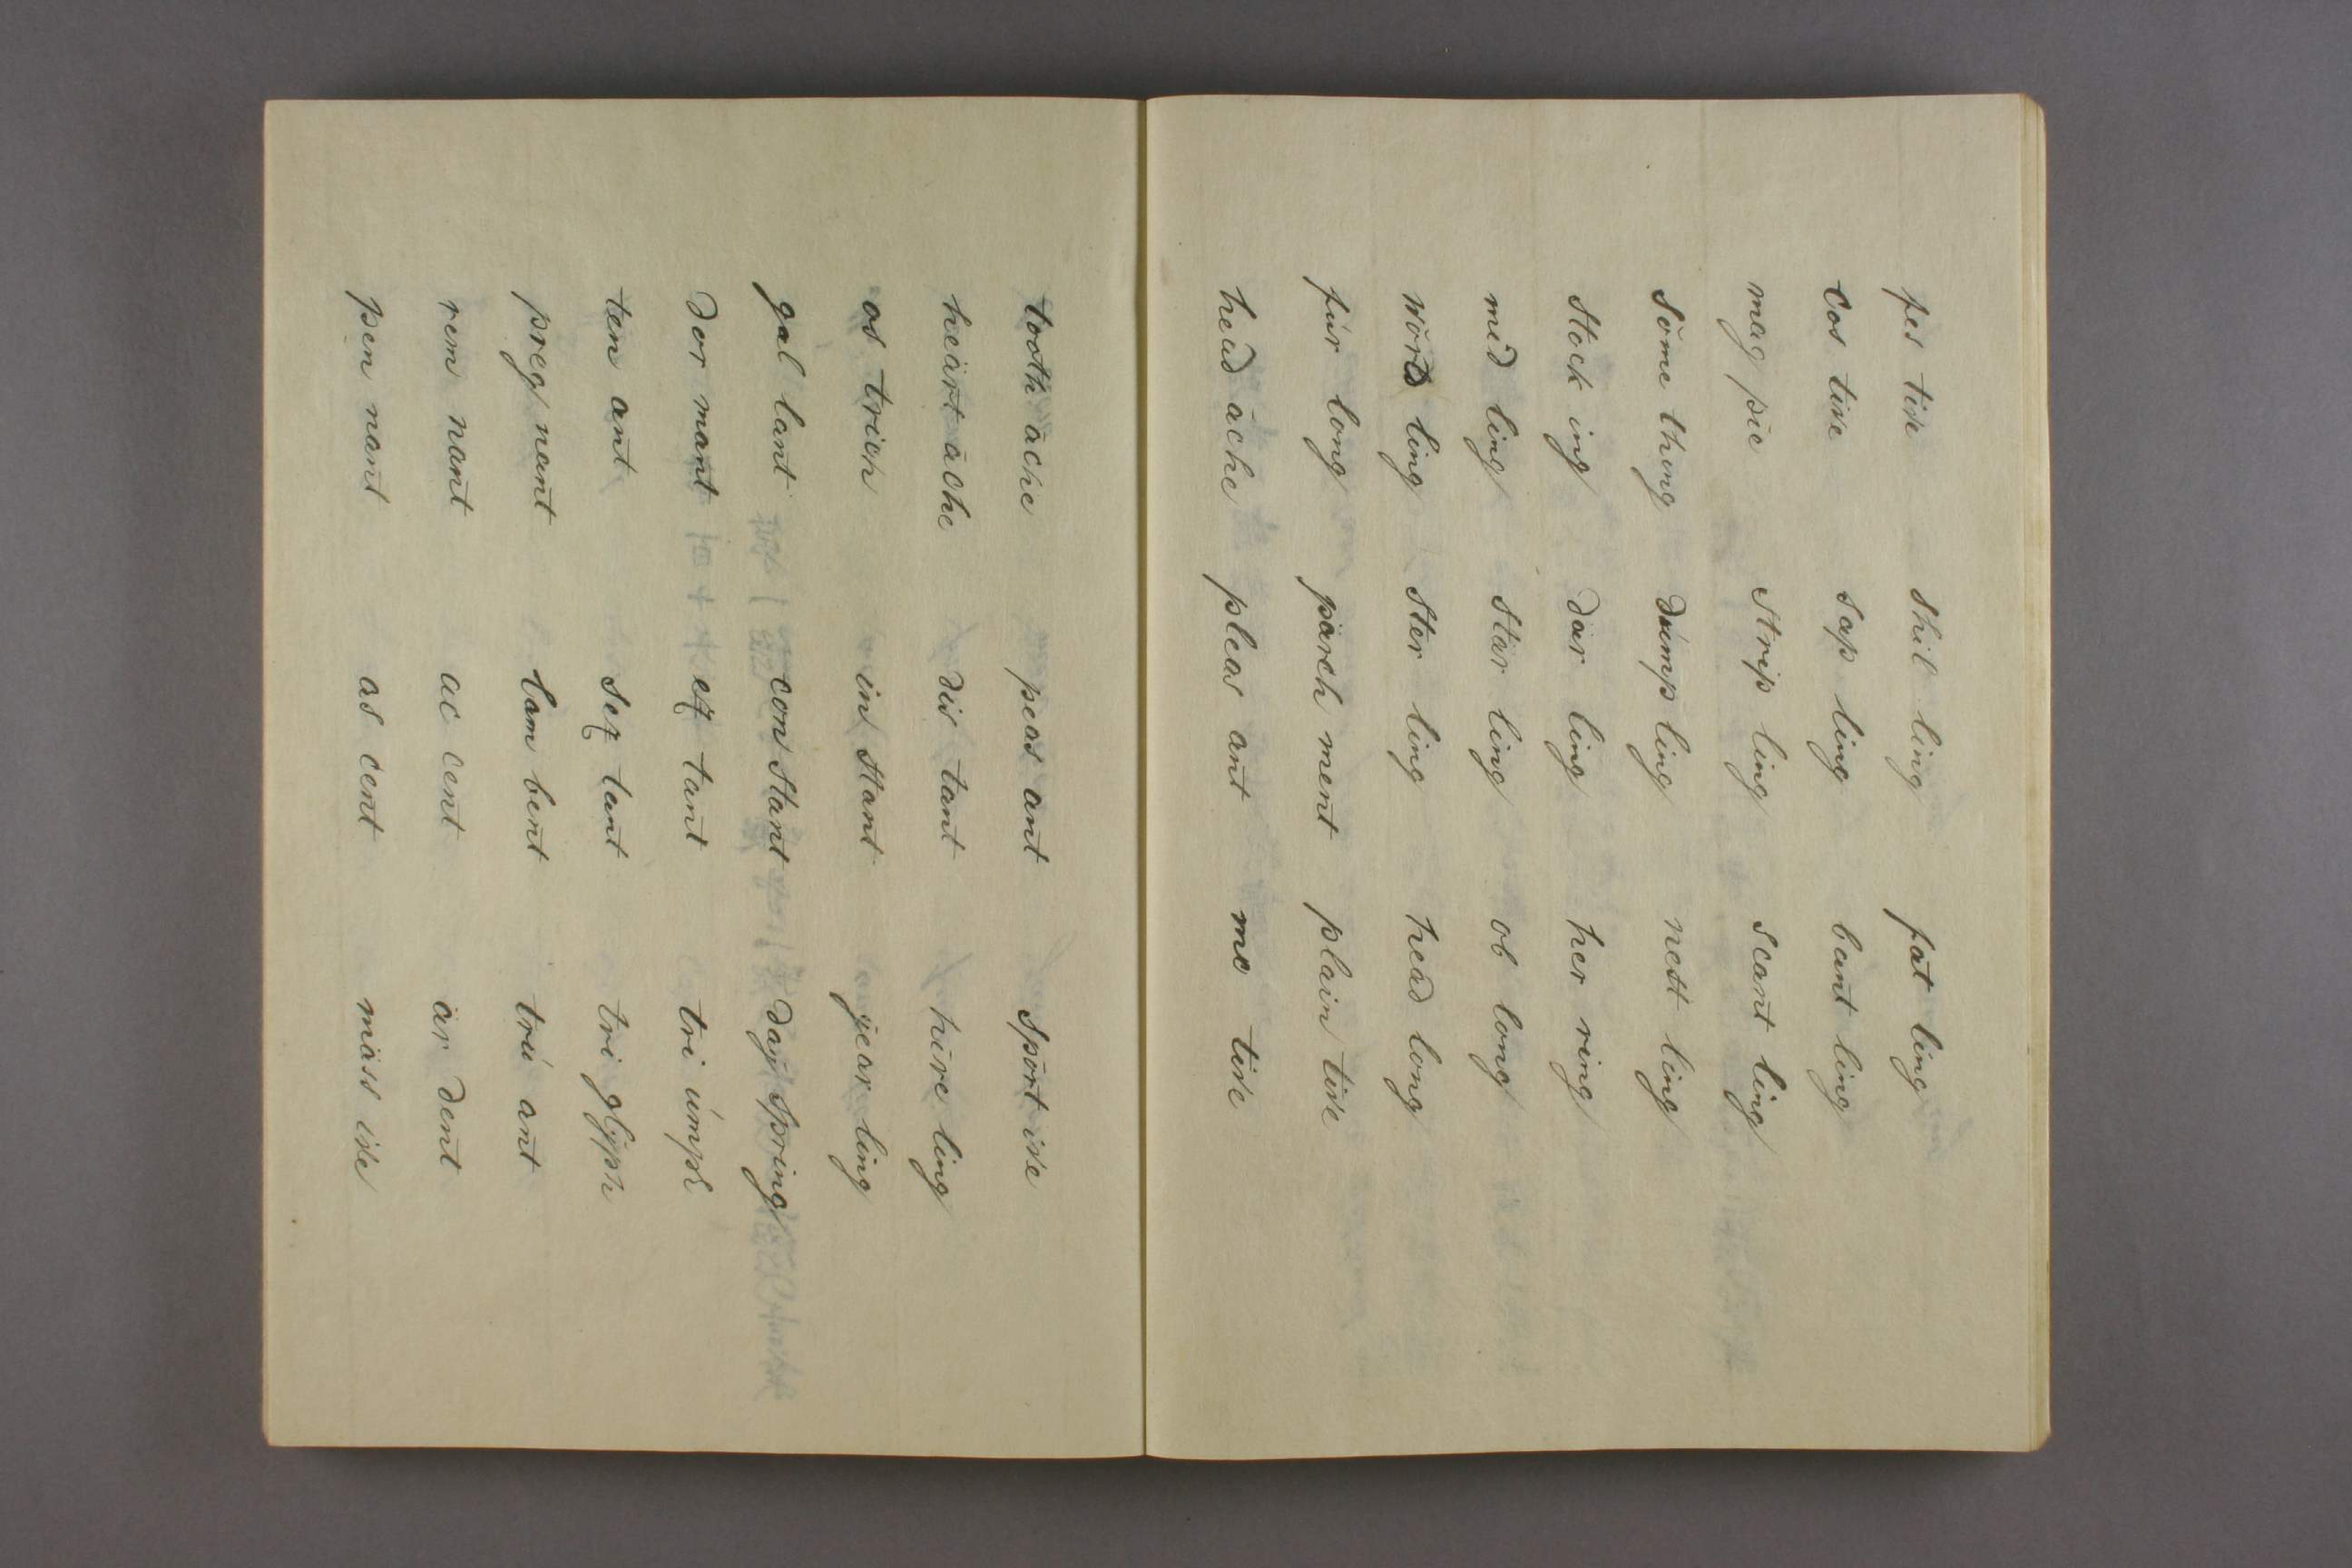 fes tive shil ling fat ling
cos tive sap ling bant ling
mag pīe strip ling scant ling
sōme thing dúmp ling nest ling
stock ing dar ling her ring
mid ling star ling ob long
word ling ster ling head long
fúr long parch ment plain tive
head āche pleas ant mo tive
tooth āche peas ant spōrt ive
heart āche dis tant hīre ling
os trich in stant year ling
gal lant con stant day spring
dor mant ex tant tri úmph
ten ant sex tant tri glyph
preg nant lam bent trú ant
rem nant ac cent ar dent
pen nant as cent mass ive